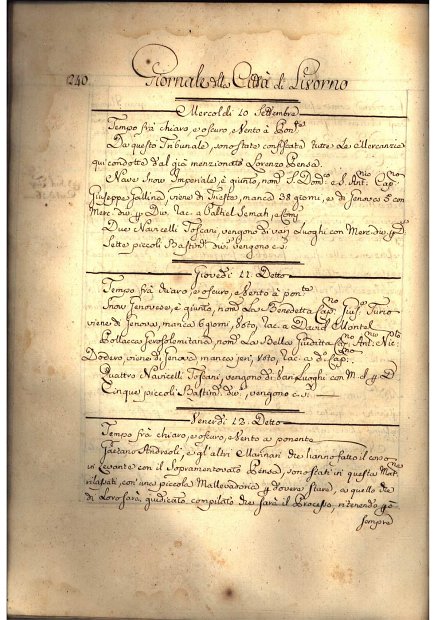 240.
Giornale della Città di Livorno
Mercoldi 10 Settembre
Tempo frà chiaro, e oscuro, e Vento à Pon.te
Da questo Tribunale, sono state confiscate tutte Le Mercanzie
qui condotte dal già menzionato Lorenzo Pensa.
Nave Snow Imperiale, è giunto, nom. S. Dom.co e S. Ant.nio Cap.no
Giuseppe Gallina, viene di Trieste, manca 38 giorni, e di Genova 5 con
Merc. div. p. Div. rac. a Paltiel Semah, e Comp.
Due Navicelli Toscani, vengono di varj Luoghi con Merc. div. p. D.
Sette piccoli Bastim.ti div. vengono c. s.
Giovedi 11. Detto
Tempo frà chiaro, e oscuro, e Vento à pon.te
Snow Genovese, è giunto, nom. La Benedetta Cap.no Gius.
viene di Genova, manca 6 giorni, Voto, rac. a David Montel
Pollacca Gerosolomitana, nom. La Bella Giuditta Cap.no Ant. Nic.
Dodero, viene di Genova, manca jeri, Voto, rac. a d. Cap.
Quattro Navicelli Toscani, vengono di varj Luoghi con M. d. p. D.
Cinque piccoli Bastim. div. vengono c. s.
Venerdi 12. Detto
Tempo frà chiaro, e oscuro, e Vento a ponente
Gaetano Andreoli, e gl'altri Marinari che hanno fatto il corso
in Levante con il Sopramentovato Pensa, sono stati in questa
rilasciati, con una piccola Mallevadoria p. dovere stare, a quello che
di Loro sarà giudicato compilato che sarà il Processo, ritenendo
sempre